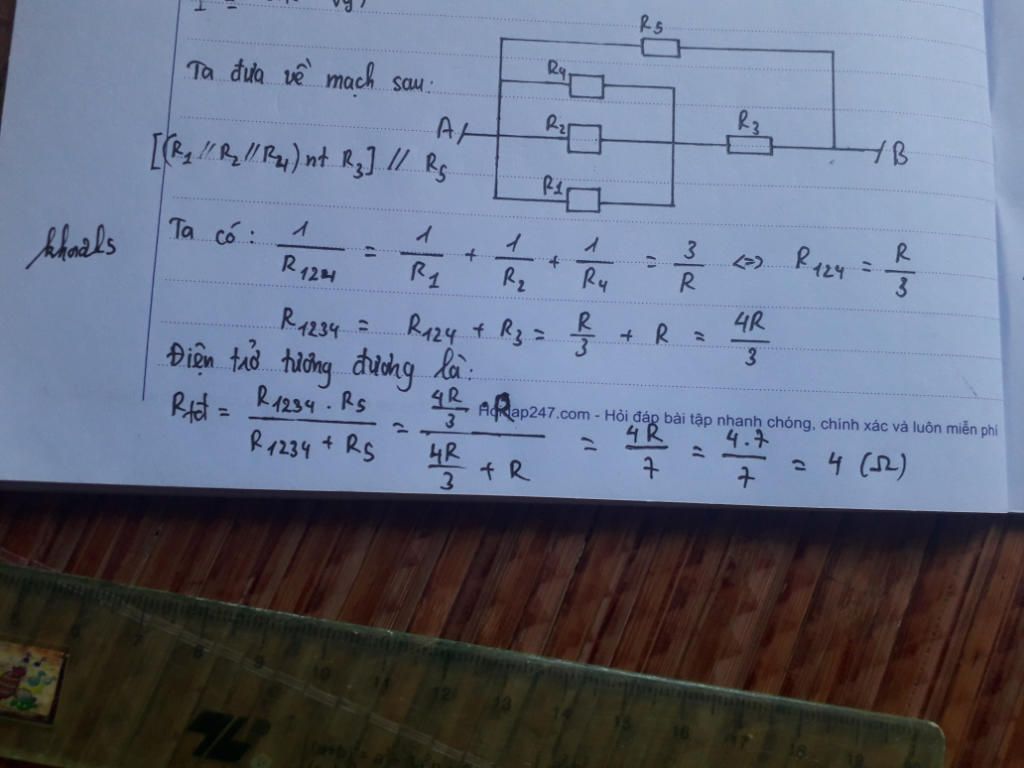 R5
Ta đưa về mạch sau:
R4
A
R2
R3
B
[(R1 // R2 // R4) nt R3] // R5
R1
khoa2s
Ta có: 1/R124 = 1/R1 + 1/R2 + 1/R4 = 3/R <=> R124 = R/3
R1234 = R124 + R3 = R/3 + R = 4R/3
Điện trở tương đương là:
Rtđ = (R1234 . R5)/(R1234 + R5) = (4R/3 . R)/(4R/3 + R) = 4R/7 = 4.7/7 = 4 (Ω)
Hoidap247.com - Hỏi đáp bài tập nhanh chóng, chính xác và luôn miễn phí
5 7 8 9 10 11 12 13 15 16 17 18 19